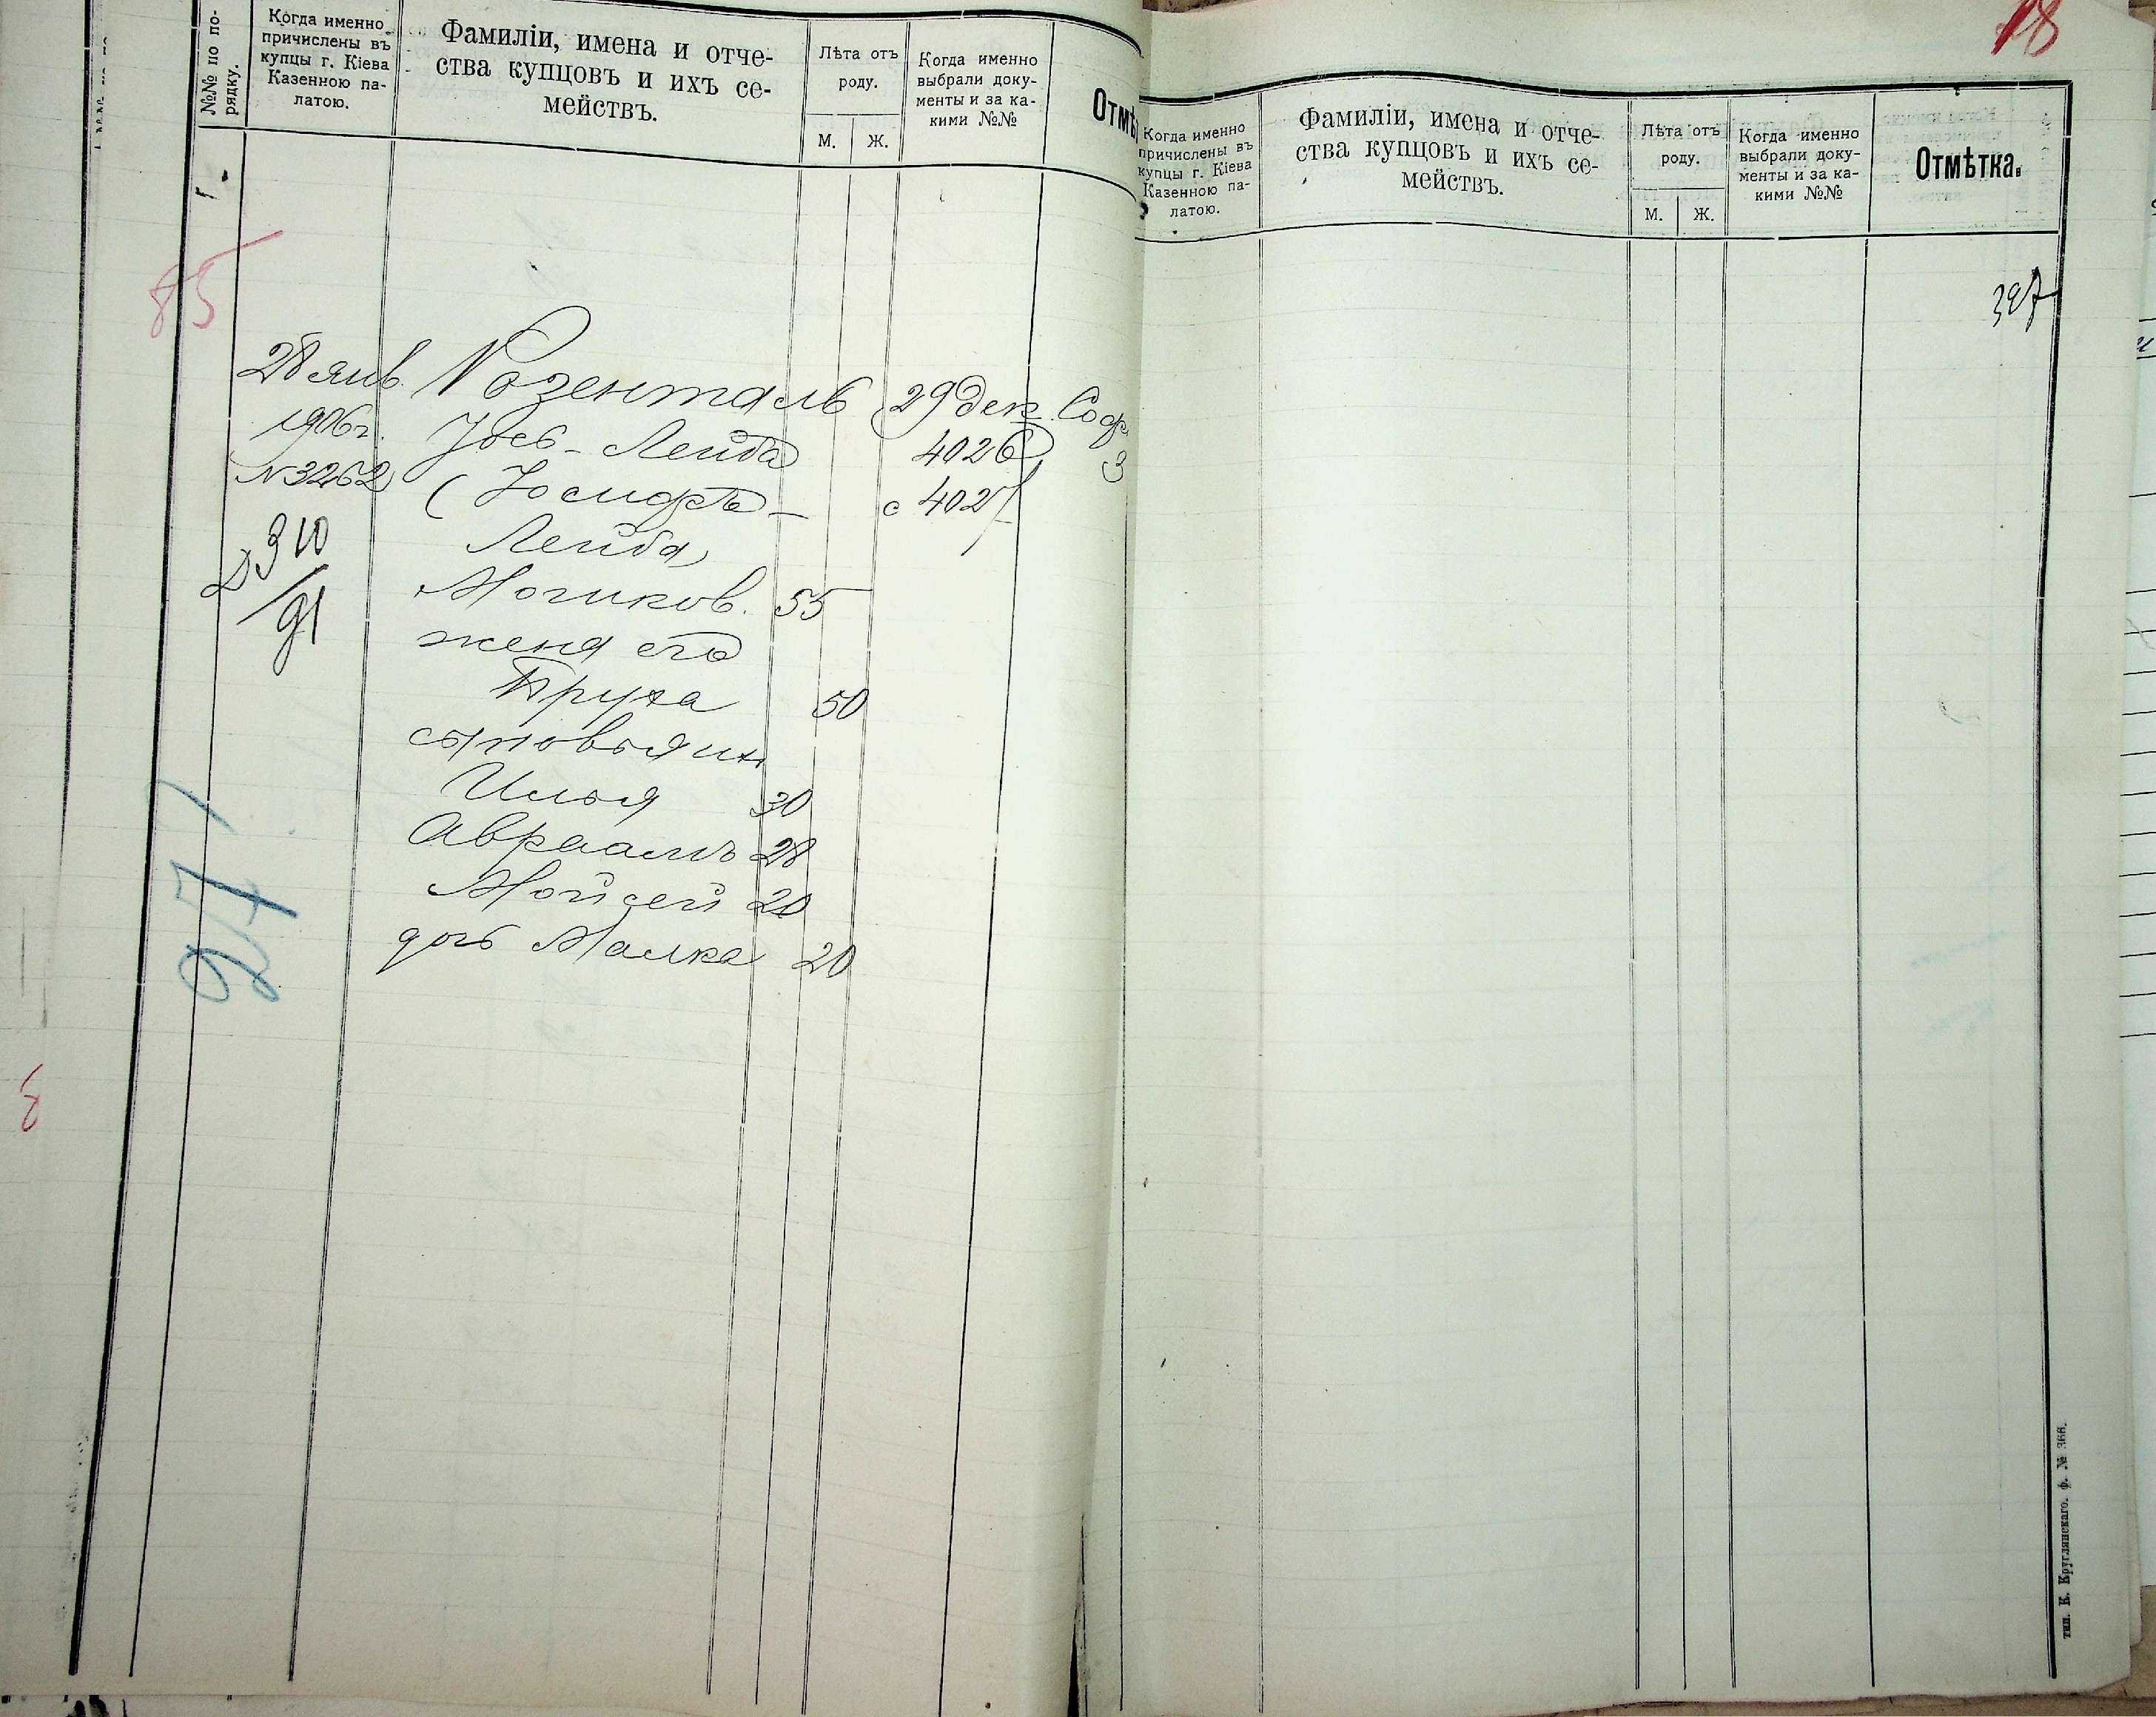 №№ по по-
рядку.
Когда именно
причислены въ
купцы г. Кіева
Казенною па-
латою.
Фамиліи, имена и отче-
ства купцовъ и ихъ се-
мействъ.
Лѣта отъ
роду.
М. Ж.
Когда именно
выбрали доку-
менты и за ка-
кими №№
Отмѣ
85
28 янв. Розенталь 29 дек. Соф
1906 г. Іось-Лейба 4026 3
№3262 (Іосифъ- с 4027
Лейба)
310
91
55
жена его
Бруха 50
сыновья их
Илья 30
Авраамъ 28
Мойсей 20
дочь Малка 20
277
8
18
Когда именно
причислены въ
купцы г. Кіева
Казенною па-
латою.
Фамиліи, имена и отче-
ства купцовъ и ихъ се-
мействъ.
Лѣта отъ
роду.
М. Ж.
Когда именно
выбрали доку-
менты и за ка-
кими №№
Отмѣтка.
397
тип. К. Круглянскаго. ф. № 366.